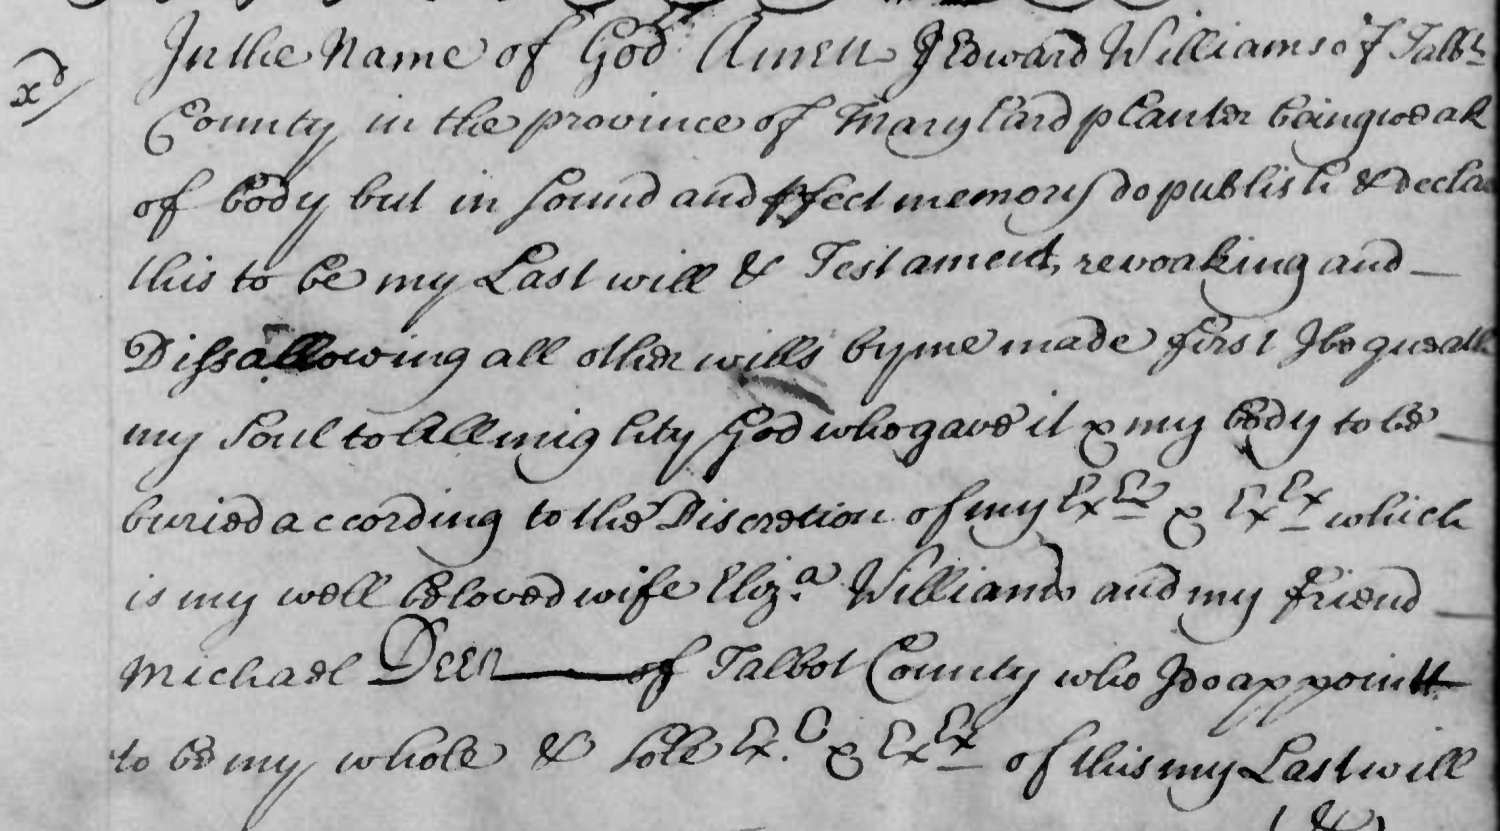 xd/
In the Name of God Amen I Edward Williams of Talbt
County in the province of Maryland planter being weak
of body but in sound and pfect memory do publish & declar
this to be my Last will & Testament, revoaking and —
Disssallowing all other wills by me made first I bequeath
my Soul to Allmighty God who gave it & my body to be —
buried according to the Discretion of my Exrs & Exrx which
is my well beloved wife Eliz.a Williams and my friend —
Michael Deen —— of Talbot County who I do appointt
to be my whole & sole Ex.r & Exrx of this my Last will
(&)